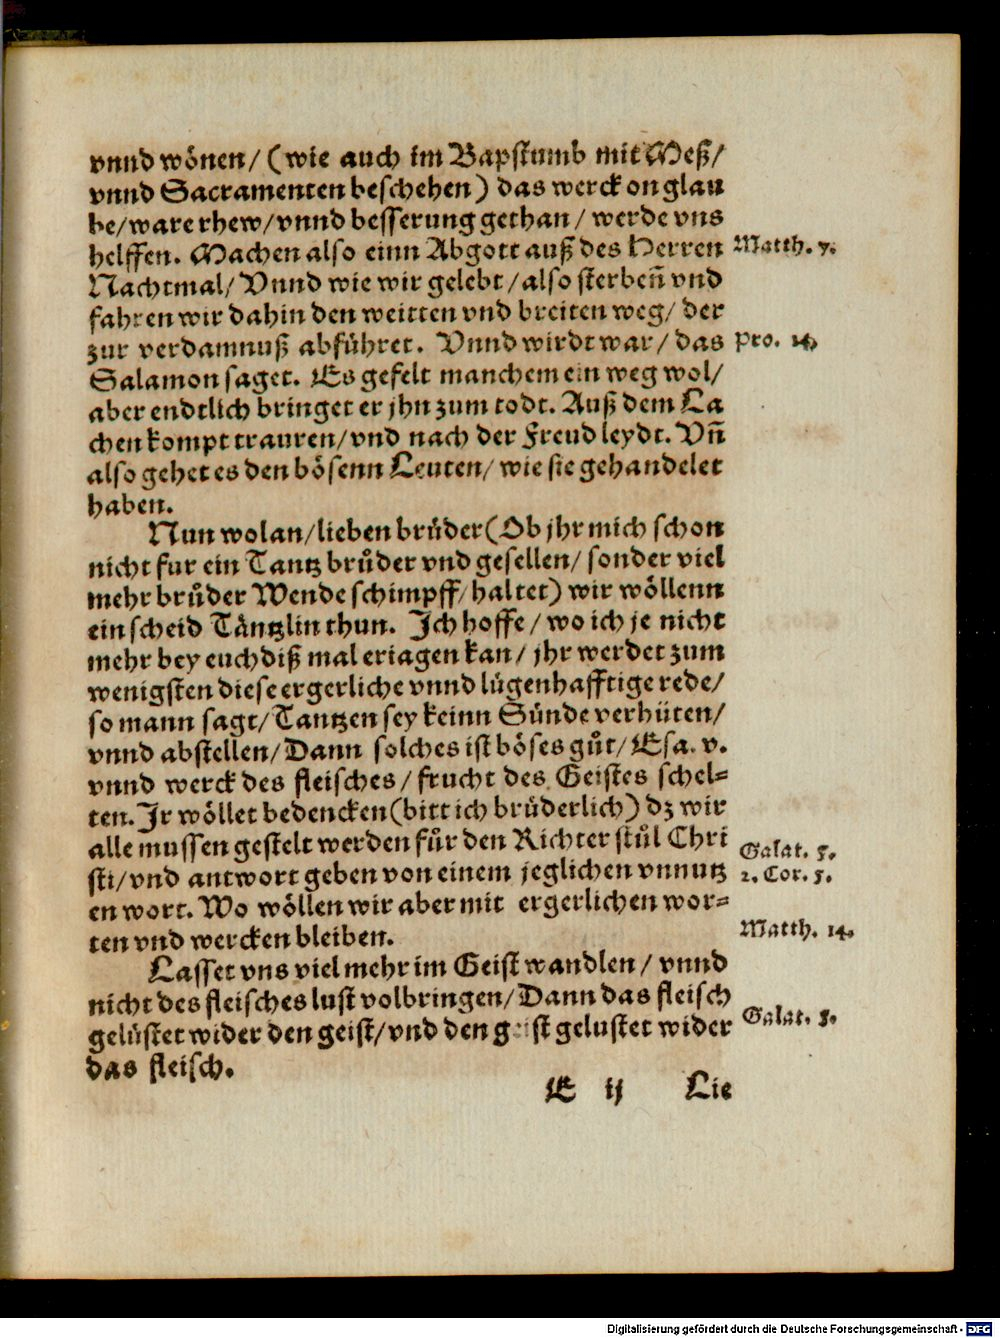 vnnd wönen/ (wie auch im Bapstumb mit Meß/
vnnd Sacramenten beschehen) das werck on glau
be/ware rhew/vnnd besserung gethan/ werde vns
helffen. Machen also einn Abgott auß des Herren
Matth. 7.
Nachtmal/ Vnnd wie wir gelebt/also sterbeñ vnd
fahren wir dahin den weitten vnd breiten weg/ der
zur verdamnuß abführet. Vnnd wirdt war/ das
Pro. 14.
Salamon saget. Es gefelt manchem ein weg wol/
aber endtlich bringet er jhn zum todt. Auß dem La
chen kompt trauren/vnd nach der Freud leydt. Vñ
also gehet es den bösenn Leuten/ wie sie gehandelet
haben.
Nun wolan/lieben brůder(Ob jhr mich schon
nicht fur ein Tantz brůder vnd gesellen/ sonder viel
mehr brůder Wende schimpff/haltet) wir wöllenn
ein scheid Täntzlin thun. Ich hoffe/ wo ich je nicht
mehr bey euch diß mal eriagen kan/ jhr werdet zum
wenigsten diese ergerliche vnnd lügenhafftige rede/
so mann sagt/Tantzen sey keinn Sünde verhüten/
vnnd abstellen/Dann solches ist böses gůt/ Esa. v.
vnnd werck des fleisches/frucht des Geistes schel⸗
ten. Ir wöllet bedencken(bitt ich brüderlich) dz wir
alle mussen gestelt werden für den Richter stůl Chri
Galat. 5.
sti/vnd antwort geben von einem jeglichen vnnutz
2. Cor. 5.
en wort. Wo wöllen wir aber mit ergerlichen wor⸗
Matth. 14.
ten vnd wercken bleiben.
Lasset vns viel mehr im Geist wandlen/ vnnd
nicht des fleisches lust volbringen/Dann das fleisch
Galat. 5.
gelüstet wider den geist/vnd den geist gelustet wider
das fleisch.
E ij Lie
Digitalisierung gefördert durch die Deutsche Forschungsgemeinschaft - DFG